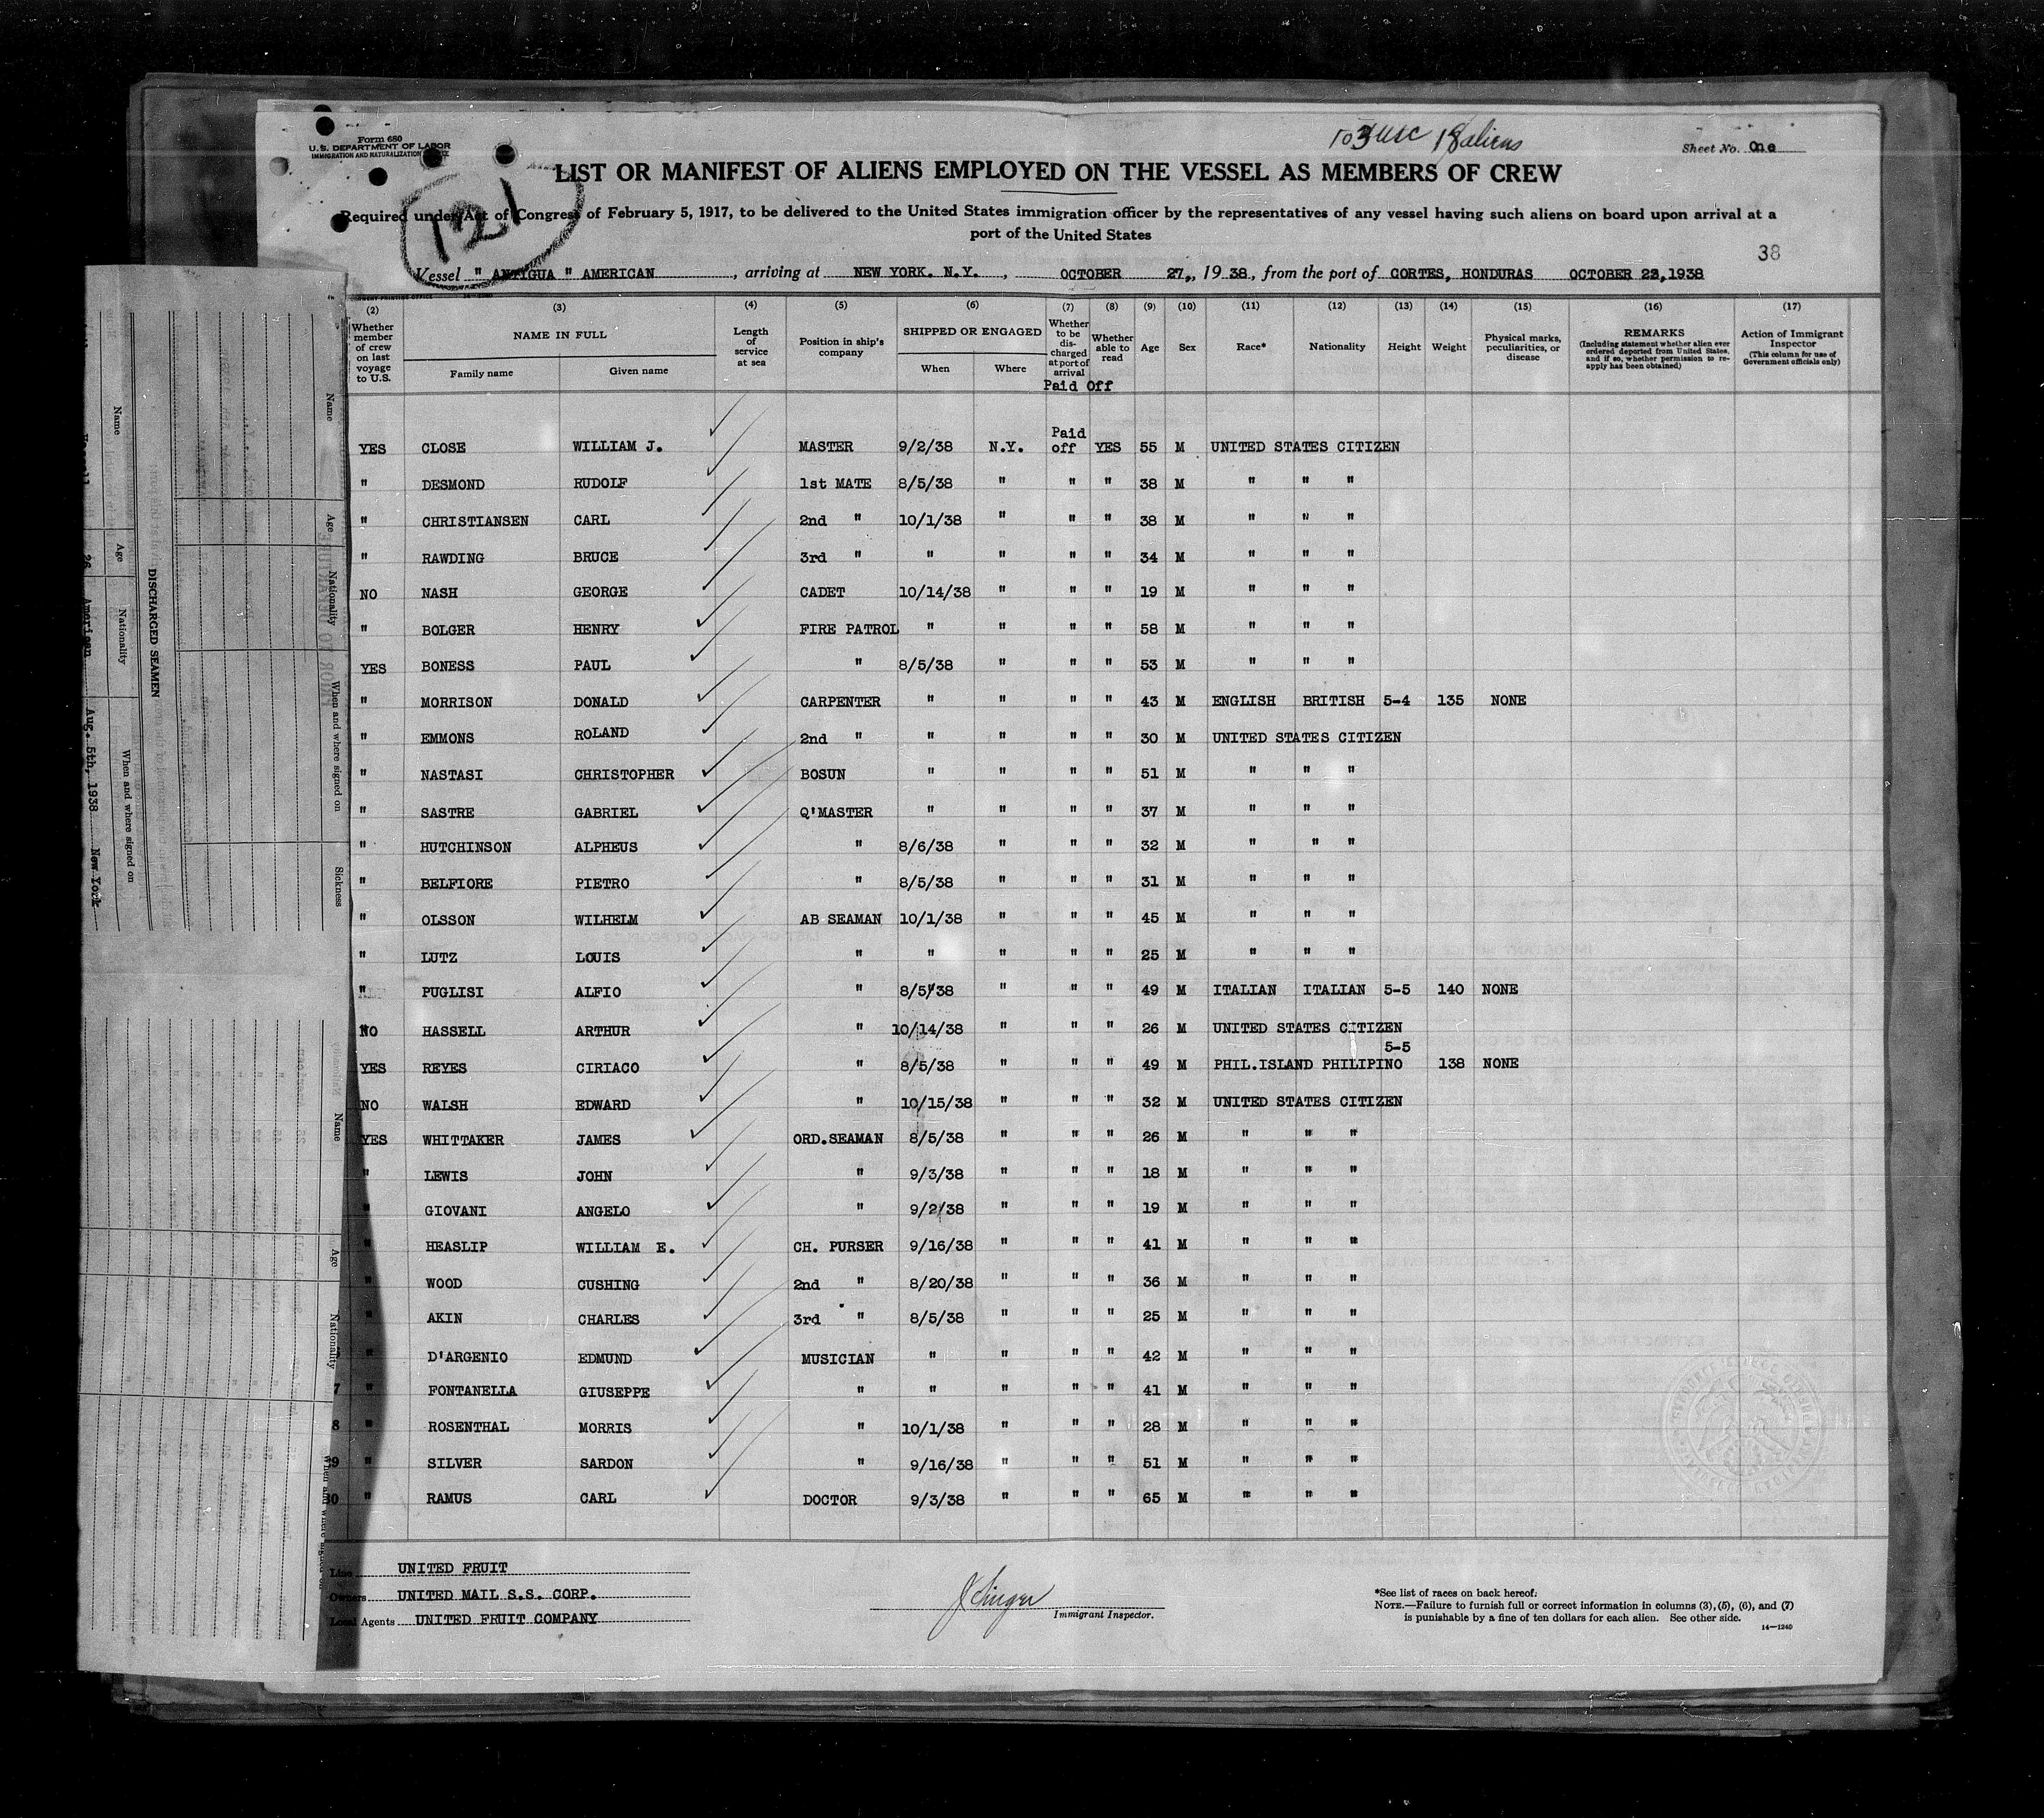 Form 680
U.S. DEPARTMENT OF LABOR
IMMIGRATION AND NATURALIZATION
103 USC 18 aliens
Sheet No. One
LIST OR MANIFEST OF ALIENS EMPLOYED ON THE VESSEL AS MEMBERS OF CREW
121
Required under Act of Congress of February 5, 1917, to be delivered to the United States immigration officer by the representatives of any vessel having such aliens on board upon arrival at a
port of the United States
38
Vessel " ANTIGUA " AMERICAN , arriving at NEW YORK. N.Y. , OCTOBER 27, 1938, from the port of CORTES, HONDURAS OCTOBER 23,1938
(2) (3) (4) (5) (6) (7) (8) (9) (10) (11) (12) (13) (14) (15) (16) (17)
Whether member of crew on last voyage to U.S. NAME IN FULL Family name Given name Length of service at sea Position in ship's company SHIPPED OR ENGAGED When Where Whether to be discharged at port of arrival Whether able to read Age Sex Race* Nationality Height Weight Physical marks, peculiarities, or disease REMARKS (Including statement whether alien ever ordered deported from United States, and if so, whether permission to reapply has been obtained) Action of Immigrant Inspector (This column for use of Government officials only)
Paid Off
YES CLOSE WILLIAM J. MASTER 9/2/38 N.Y. Paid off YES 55 M UNITED STATES CITIZEN
" DESMOND RUDOLF 1st MATE 8/5/38 " " " 38 M " " "
" CHRISTIANSEN CARL 2nd " 10/1/38 " " " 38 M " " "
" RAWDING BRUCE 3rd " " " " " 34 M " " "
NO NASH GEORGE CADET 10/14/38 " " " 19 M " " "
" BOLGER HENRY FIRE PATROL " " " " 58 M " " "
YES BONESS PAUL " 8/5/38 " " " 53 M " " "
" MORRISON DONALD CARPENTER " " " " 43 M ENGLISH BRITISH 5-4 135 NONE
" EMMONS ROLAND 2nd " " " " " 30 M UNITED STATES CITIZEN
" NASTASI CHRISTOPHER BOSUN " " " " 51 M " " "
" SASTRE GABRIEL Q'MASTER " " " " 37 M " " "
" HUTCHINSON ALPHEUS " 8/6/38 " " " 32 M " " "
" BELFIORE PIETRO " 8/5/38 " " " 31 M " " "
" OLSSON WILHELM AB SEAMAN 10/1/38 " " " 45 M " " "
" LUTZ LOUIS " " " " " 25 M " " "
" PUGLISI ALFIO " 8/5/38 " " " 49 M ITALIAN ITALIAN 5-5 140 NONE
NO HASSELL ARTHUR " 10/14/38 " " " 26 M UNITED STATES CITIZEN
YES REYES CIRIACO " 8/5/38 " " " 49 M PHIL.ISLAND PHILIPINO 5-5 138 NONE
NO WALSH EDWARD " 10/15/38 " " " 32 M UNITED STATES CITIZEN
YES WHITTAKER JAMES ORD.SEAMAN 8/5/38 " " " 26 M " " "
" LEWIS JOHN " 9/3/38 " " " 18 M " " "
" GIOVANI ANGELO " 9/2/38 " " " 19 M " " "
" HEASLIP WILLIAM E. CH. PURSER 9/16/38 " " " 41 M " " "
" WOOD CUSHING 2nd " 8/20/38 " " " 36 M " " "
" AKIN CHARLES 3rd " 8/5/38 " " " 25 M " " "
" D'ARGENIO EDMUND MUSICIAN " " " " 42 M " " "
7 " FONTANELLA GIUSEPPE " " " " " 41 M " " "
8 " ROSENTHAL MORRIS " 10/1/38 " " " 28 M " " "
29 " SILVER SARDON " 9/16/38 " " " 51 M " " "
30 " RAMUS CARL DOCTOR 9/3/38 " " " 65 M " " "
Line UNITED FRUIT
Owners UNITED MAIL S.S. CORP.
Local Agents UNITED FRUIT COMPANY
Immigrant Inspector.
*See list of races on back hereof.
NOTE.—Failure to furnish full or correct information in columns (3), (5), (6), and (7)
is punishable by a fine of ten dollars for each alien. See other side.
14—1240
Name Age Nationality When and where signed on
26 American Aug. 5th, 1938 New York
DISCHARGED SEAMEN
Name Age Nationality When and where signed on Sickness
Name Age Nationality When and where signed on